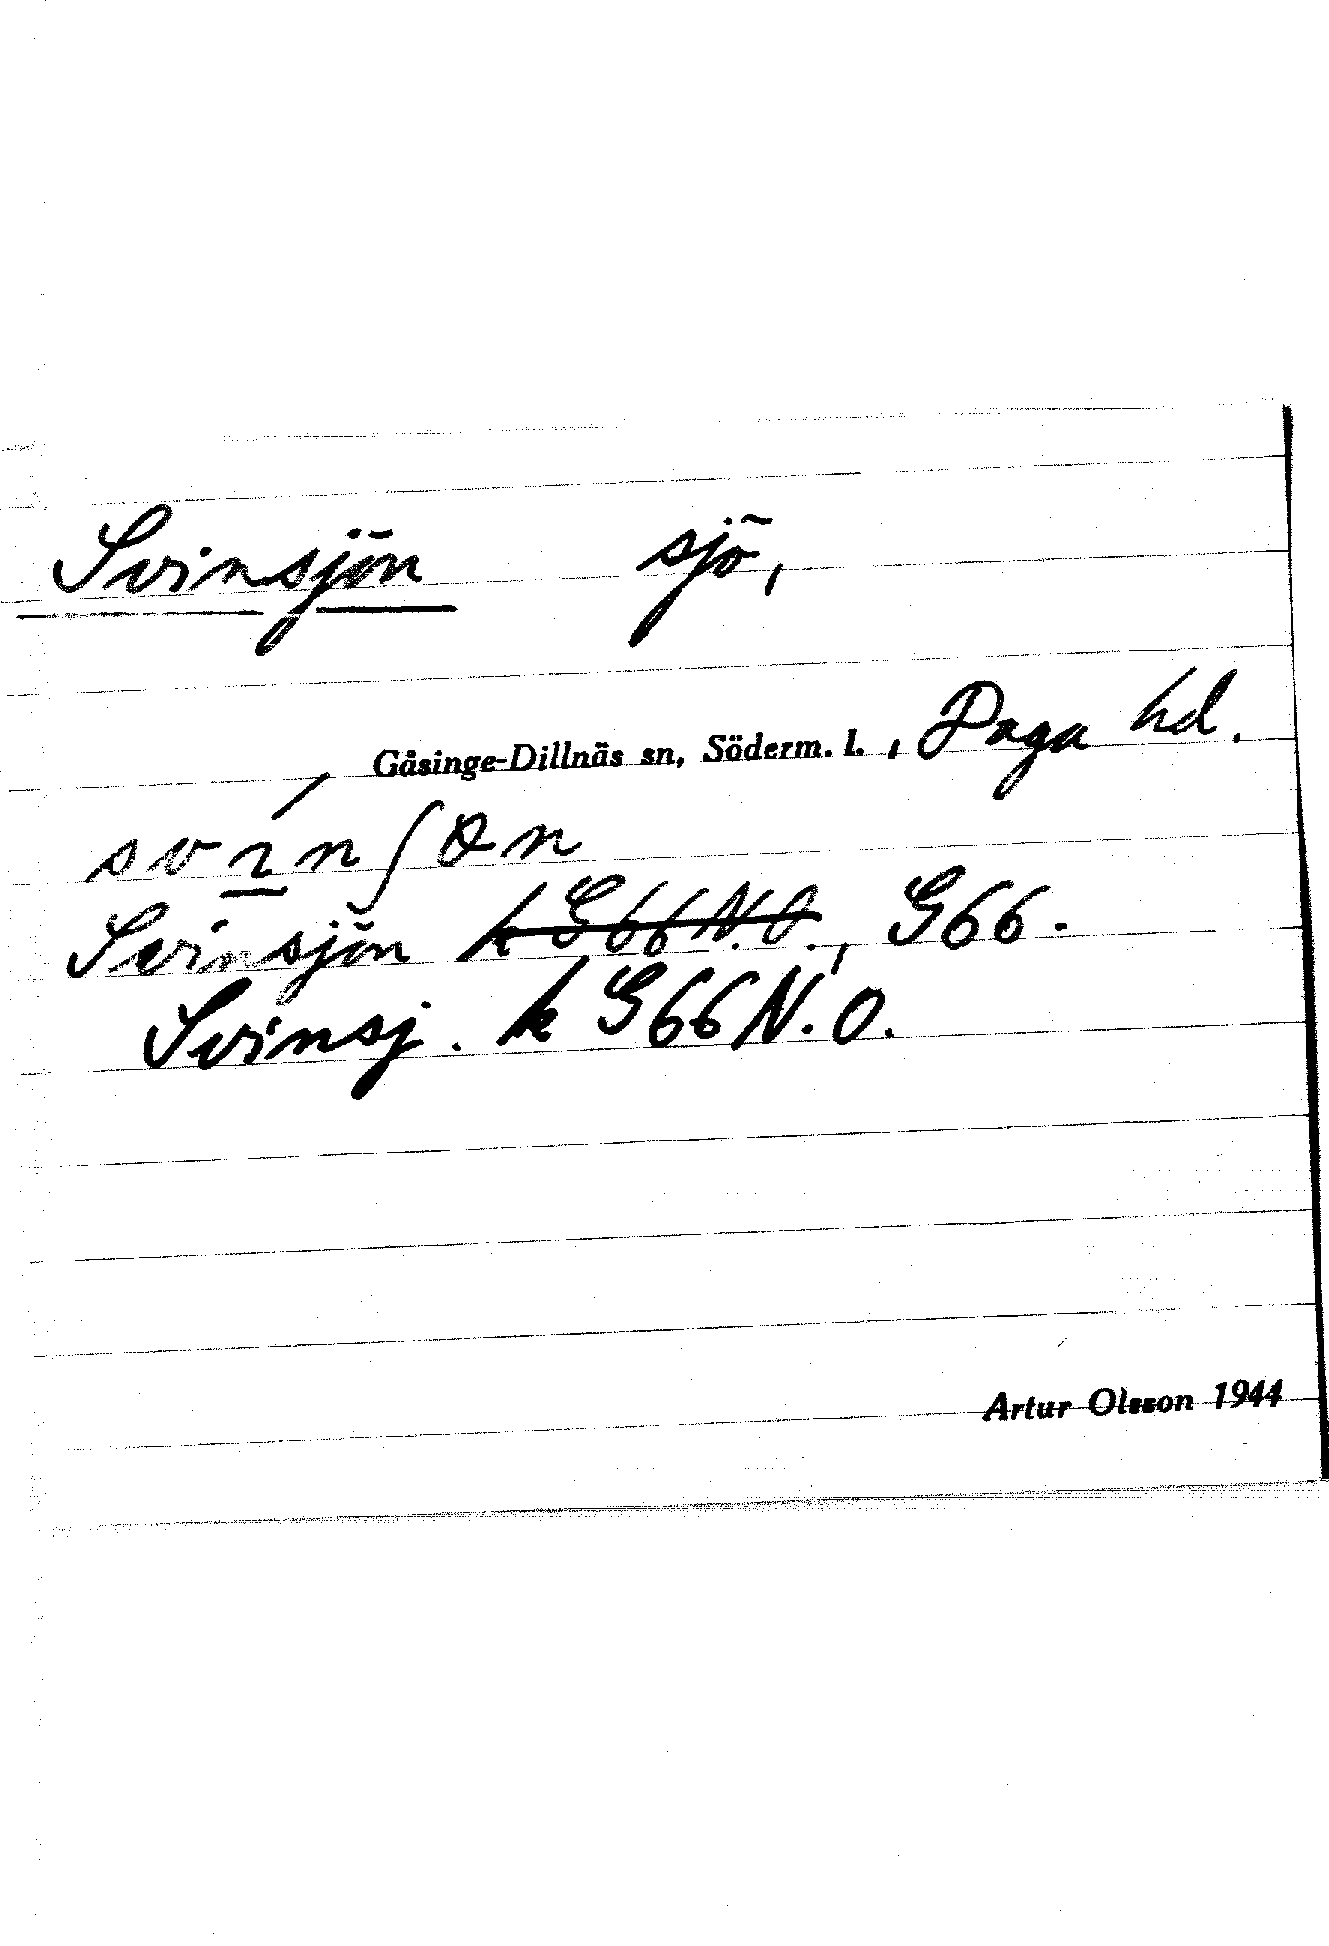 Svinsjön sjö,
Gåsinge-Dillnäs sn, Söderm. l., Daga hd.
svı̲́nʃɵn
Svinsjön k G66 N.O., G66.
Svinsj. k G66 N.O.
Artur Olsson 1944